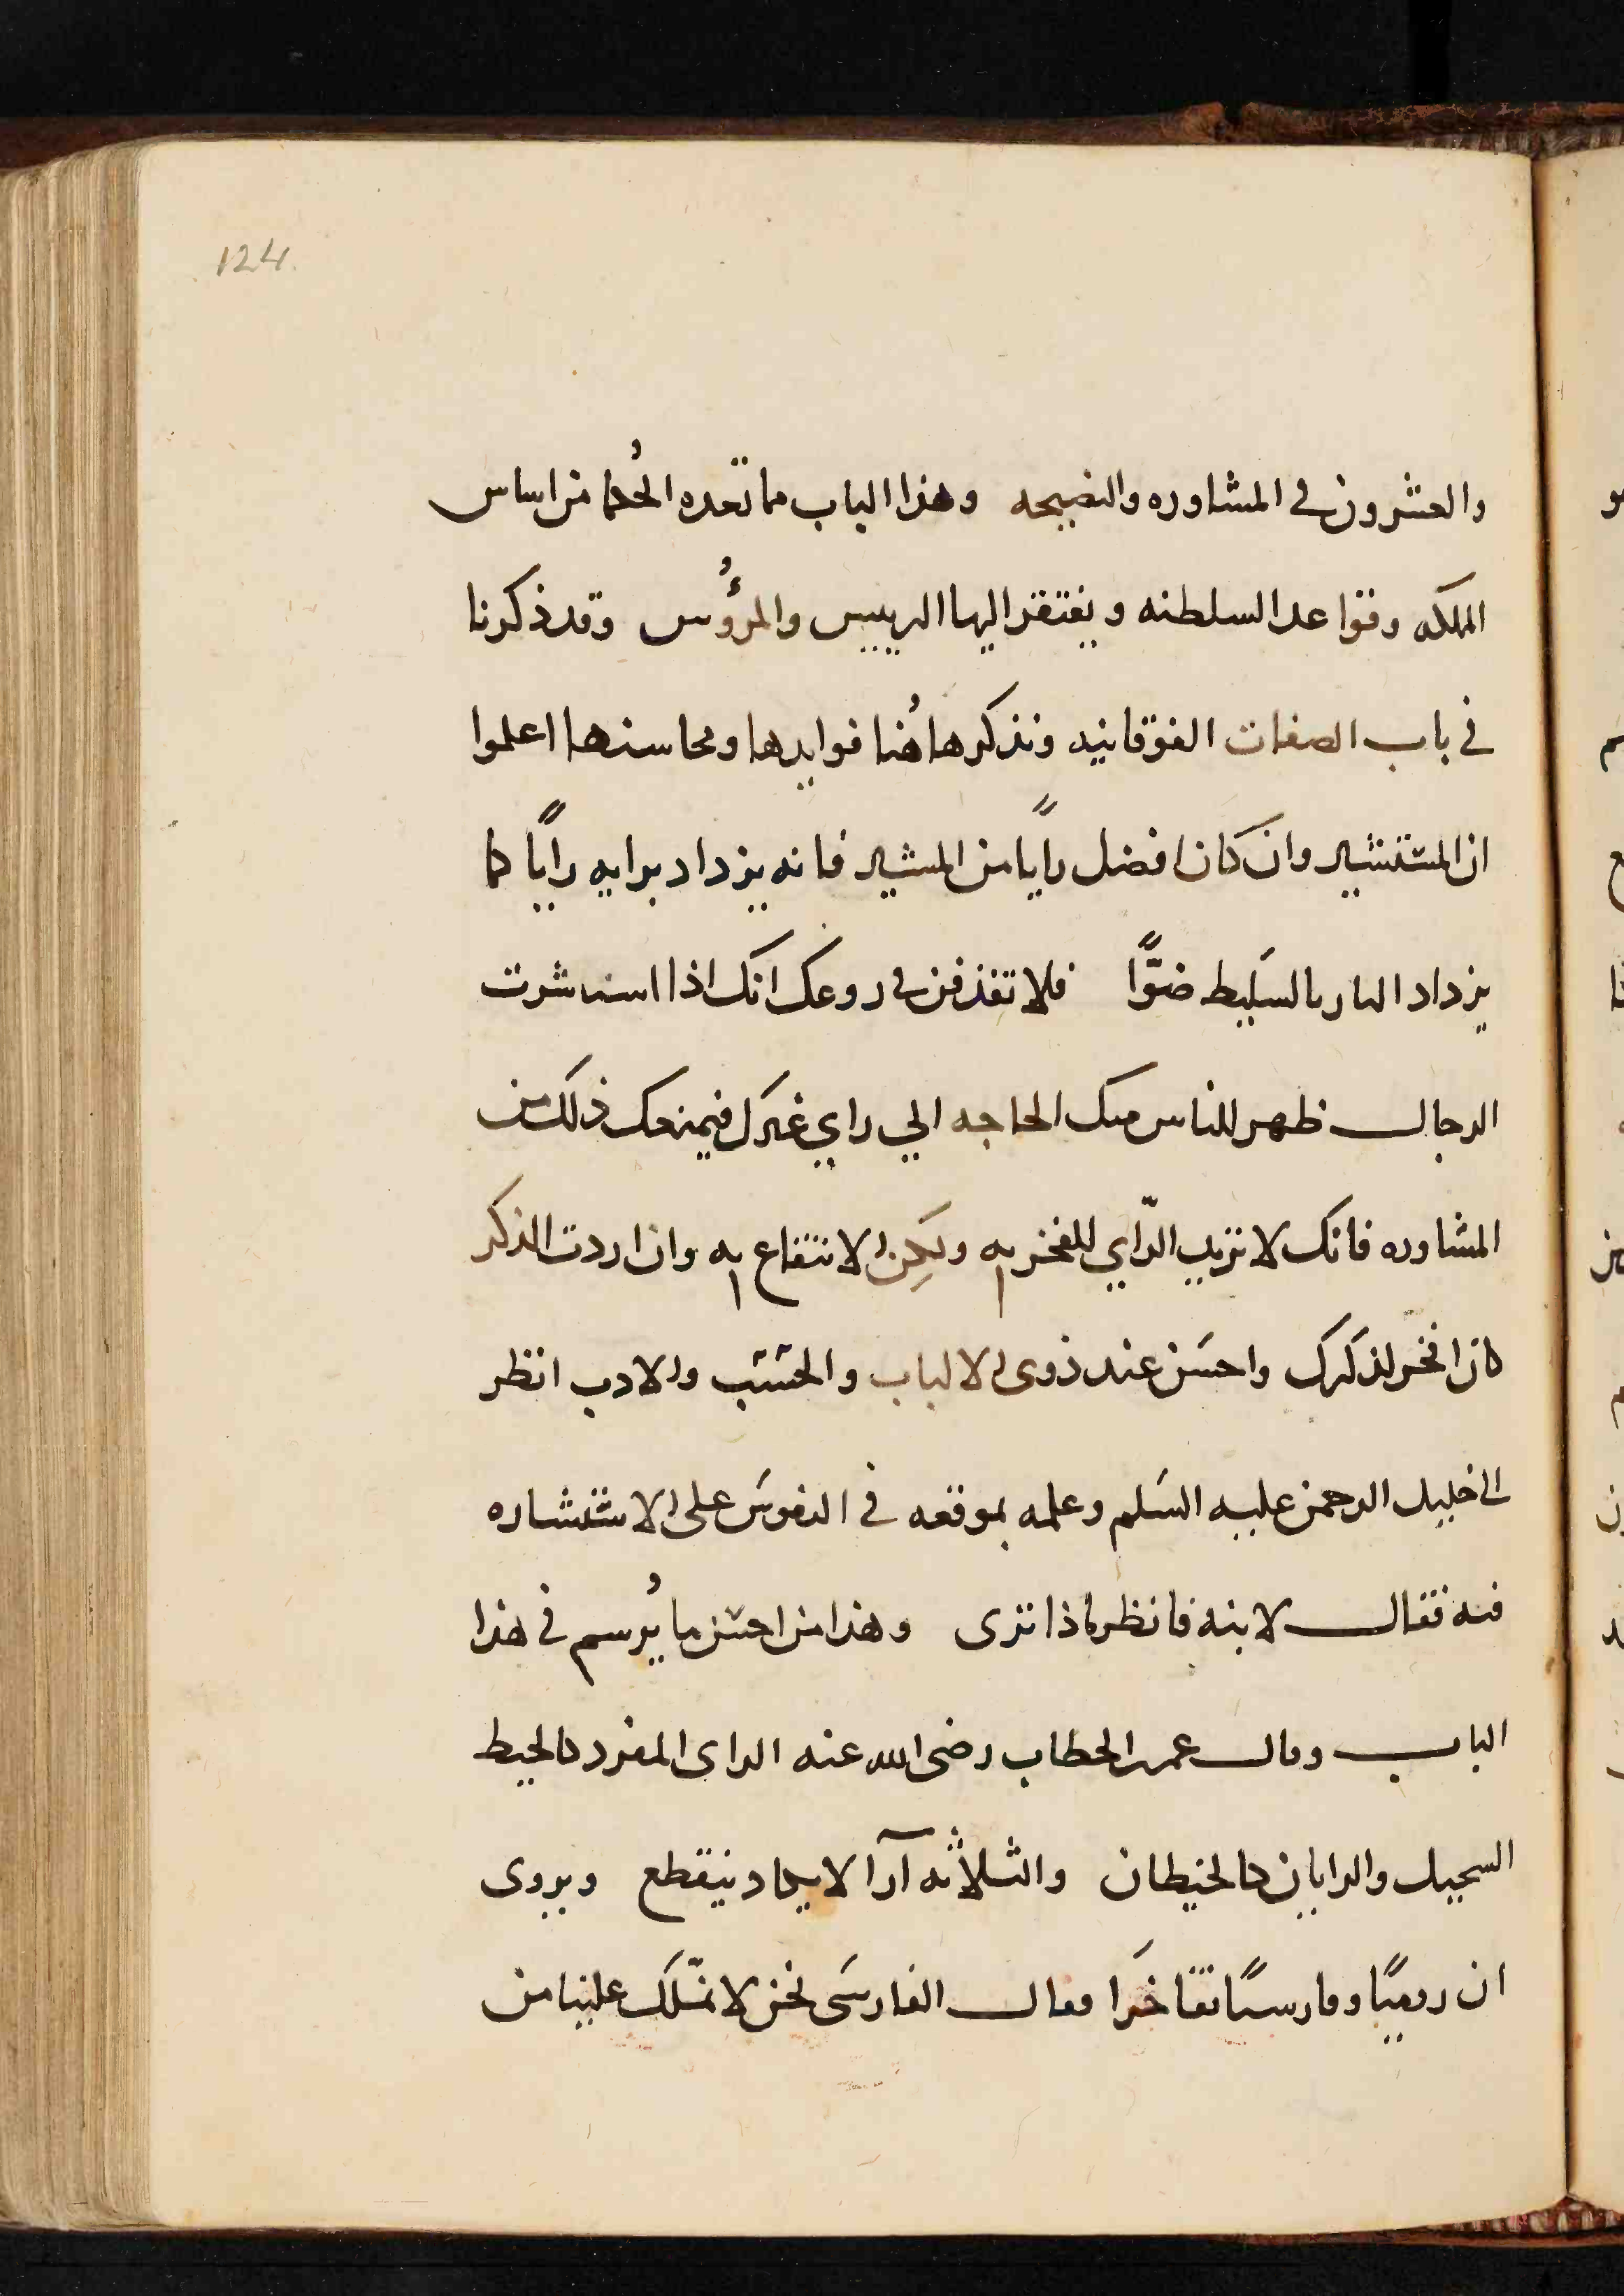 124.
والعشرون في المشاوره والنصيحه وهذا الباب مما تعده الحُكما من اساس
المملكه وقواعد السلطنه ويفتقر اليها الرييس والمرؤُس وقد ذكرنا
في باب الصفات الفوقانيه ونذكر هاهُنا فوايدها ومحاسنها اعلموا
ان المستشير وان كان افضل راياً من المشير فانه يزداد برايه راياً كما
يزداد النار بالسَليط ضوّاً فلا تقذفن في روعك انك اذا استشرت
الرجال ظهر للناس منك الحاجه الي راي غيرك فيمنعك ذلك من
المشاوره فانك لا تريد الرّاي للفخر به ولكِن للانتفاع به وان اردت الذكر
كان افخر لذكرك واحسَن عند ذوى الالباب والحسب والادب انظر
الى خليل الرحمن عليه السَلم وعلمه بموقعه في النفوسَ على الاستشاره
فيه فقال لابنه فانظر ماذا ترى وهذا من احسن ما يُرسم في هذا
الباب وقال عمر بن الخطاب رضى الله عنه الراى المفرد كالخيط
السحيل والرايان كالخيطان والثلاثه آرآ لا يكاد ينقطع ويروى
ان روميًا وفارسيًا تفاخَرا فقال الفارسَى نحن لا نمّلك علينا من